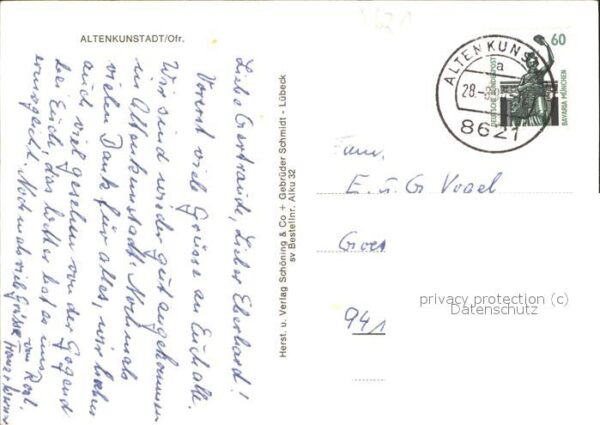 ALTENKUNSTADT/Ofr.
Liebe Gertraude, Lieber Eberhard!
Vorerst viele Grüsse an Euch alle.
Wir sind wieder gut angekommen
in Altenkunstadt. Nochmals
vielen Dank für alles, wir haben
auch viel gesehen von der Gegend
bei Euch, das Wetter hat es uns
Nochmals viele Grüsse
von
Herst. u. Verlag Schöning & Co + Gebrüder Schmidt - Lübeck
sv Bestellnr. Alku 32
ALTENKUNST
a
28.-
8621
60
DEUTSCHE BUNDESPOST
BAVARIA MÜNCHEN
Fam.
E. u. G Vogel
941
privacy protection (c)
Datenschutz